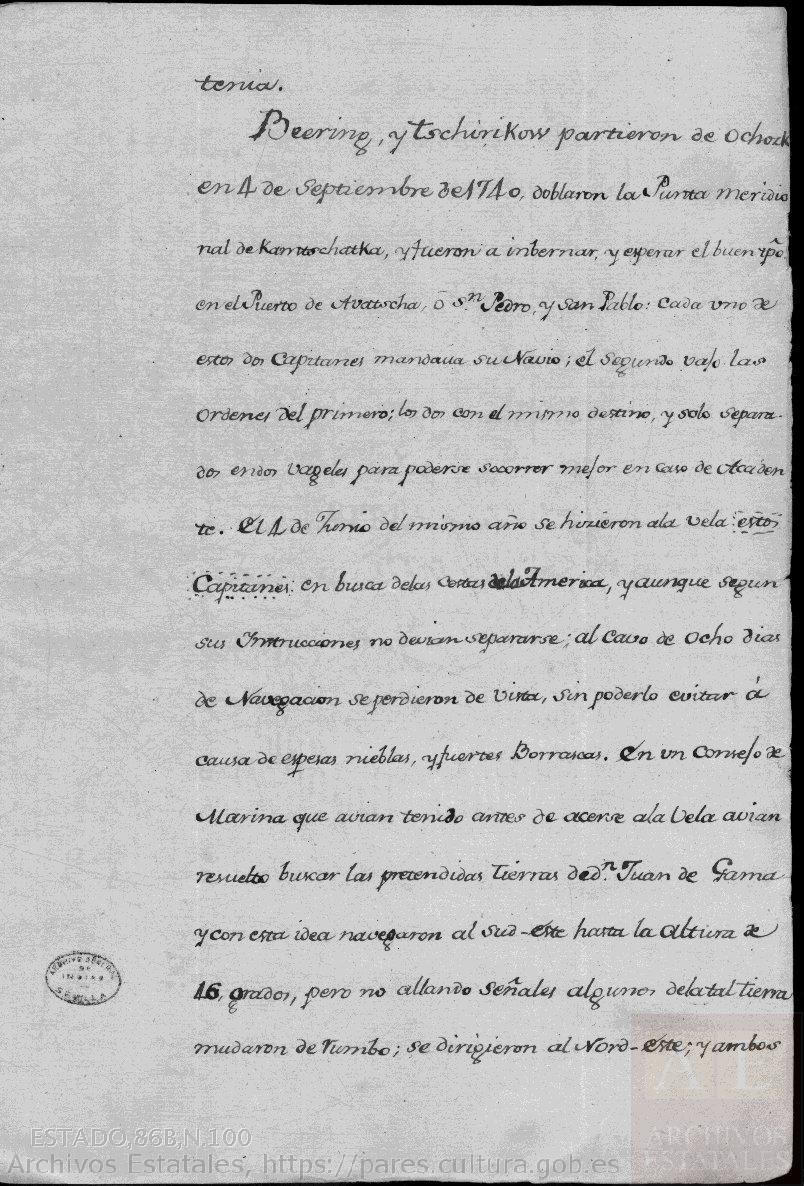 tenia.
Beering, y tschirikow partieron de Ochozk
en 4 de Septiembre de 1740, doblaron la Punta meridio
nal de Kamtschatka, y fueron a inbernar, y esperar el buen tpõ.
en el Puerto de Avatscha, ó S.n Pedro, y San Pablo: cada uno de
estos dos Capitanes mandava su Navio; el segundo vajo las
Ordenes del primero; los dos con el mismo destino, y solo separa-
dos en dos vageles para poderse socorrer mejor en caso de Acciden
te. El 4 de Junio del mismo año se hizieron ala vela estos
Capitanes en busca delas costas dela America, y aunque segun
sus Intrucciones no devian separarse; al Cavo de Ocho dias
de Navegacion se perdieron de vista, sin poderlo evitar á
causa de espesas nieblas, y fuertes Borrascas. En un Consejo de
Marina que avian tenido antes de acerse ala Vela avian
resuelto buscar las pretendidas tierras de d.n Juan de Gama
y con esta idea navegaron al Sud-este hasta la altura de
46, grados, pero no allando señales algunos dela tal tierra
mudaron de rumbo; se dirigieron al Nord-este; y ambos
ARCHIVO GENERAL
DE
INDIAS
SEVILLA
AE
ARCHIVOS
ESTATALES
ESTADO,86B,N.100
Archivos Estatales, https://pares.cultura.gob.es